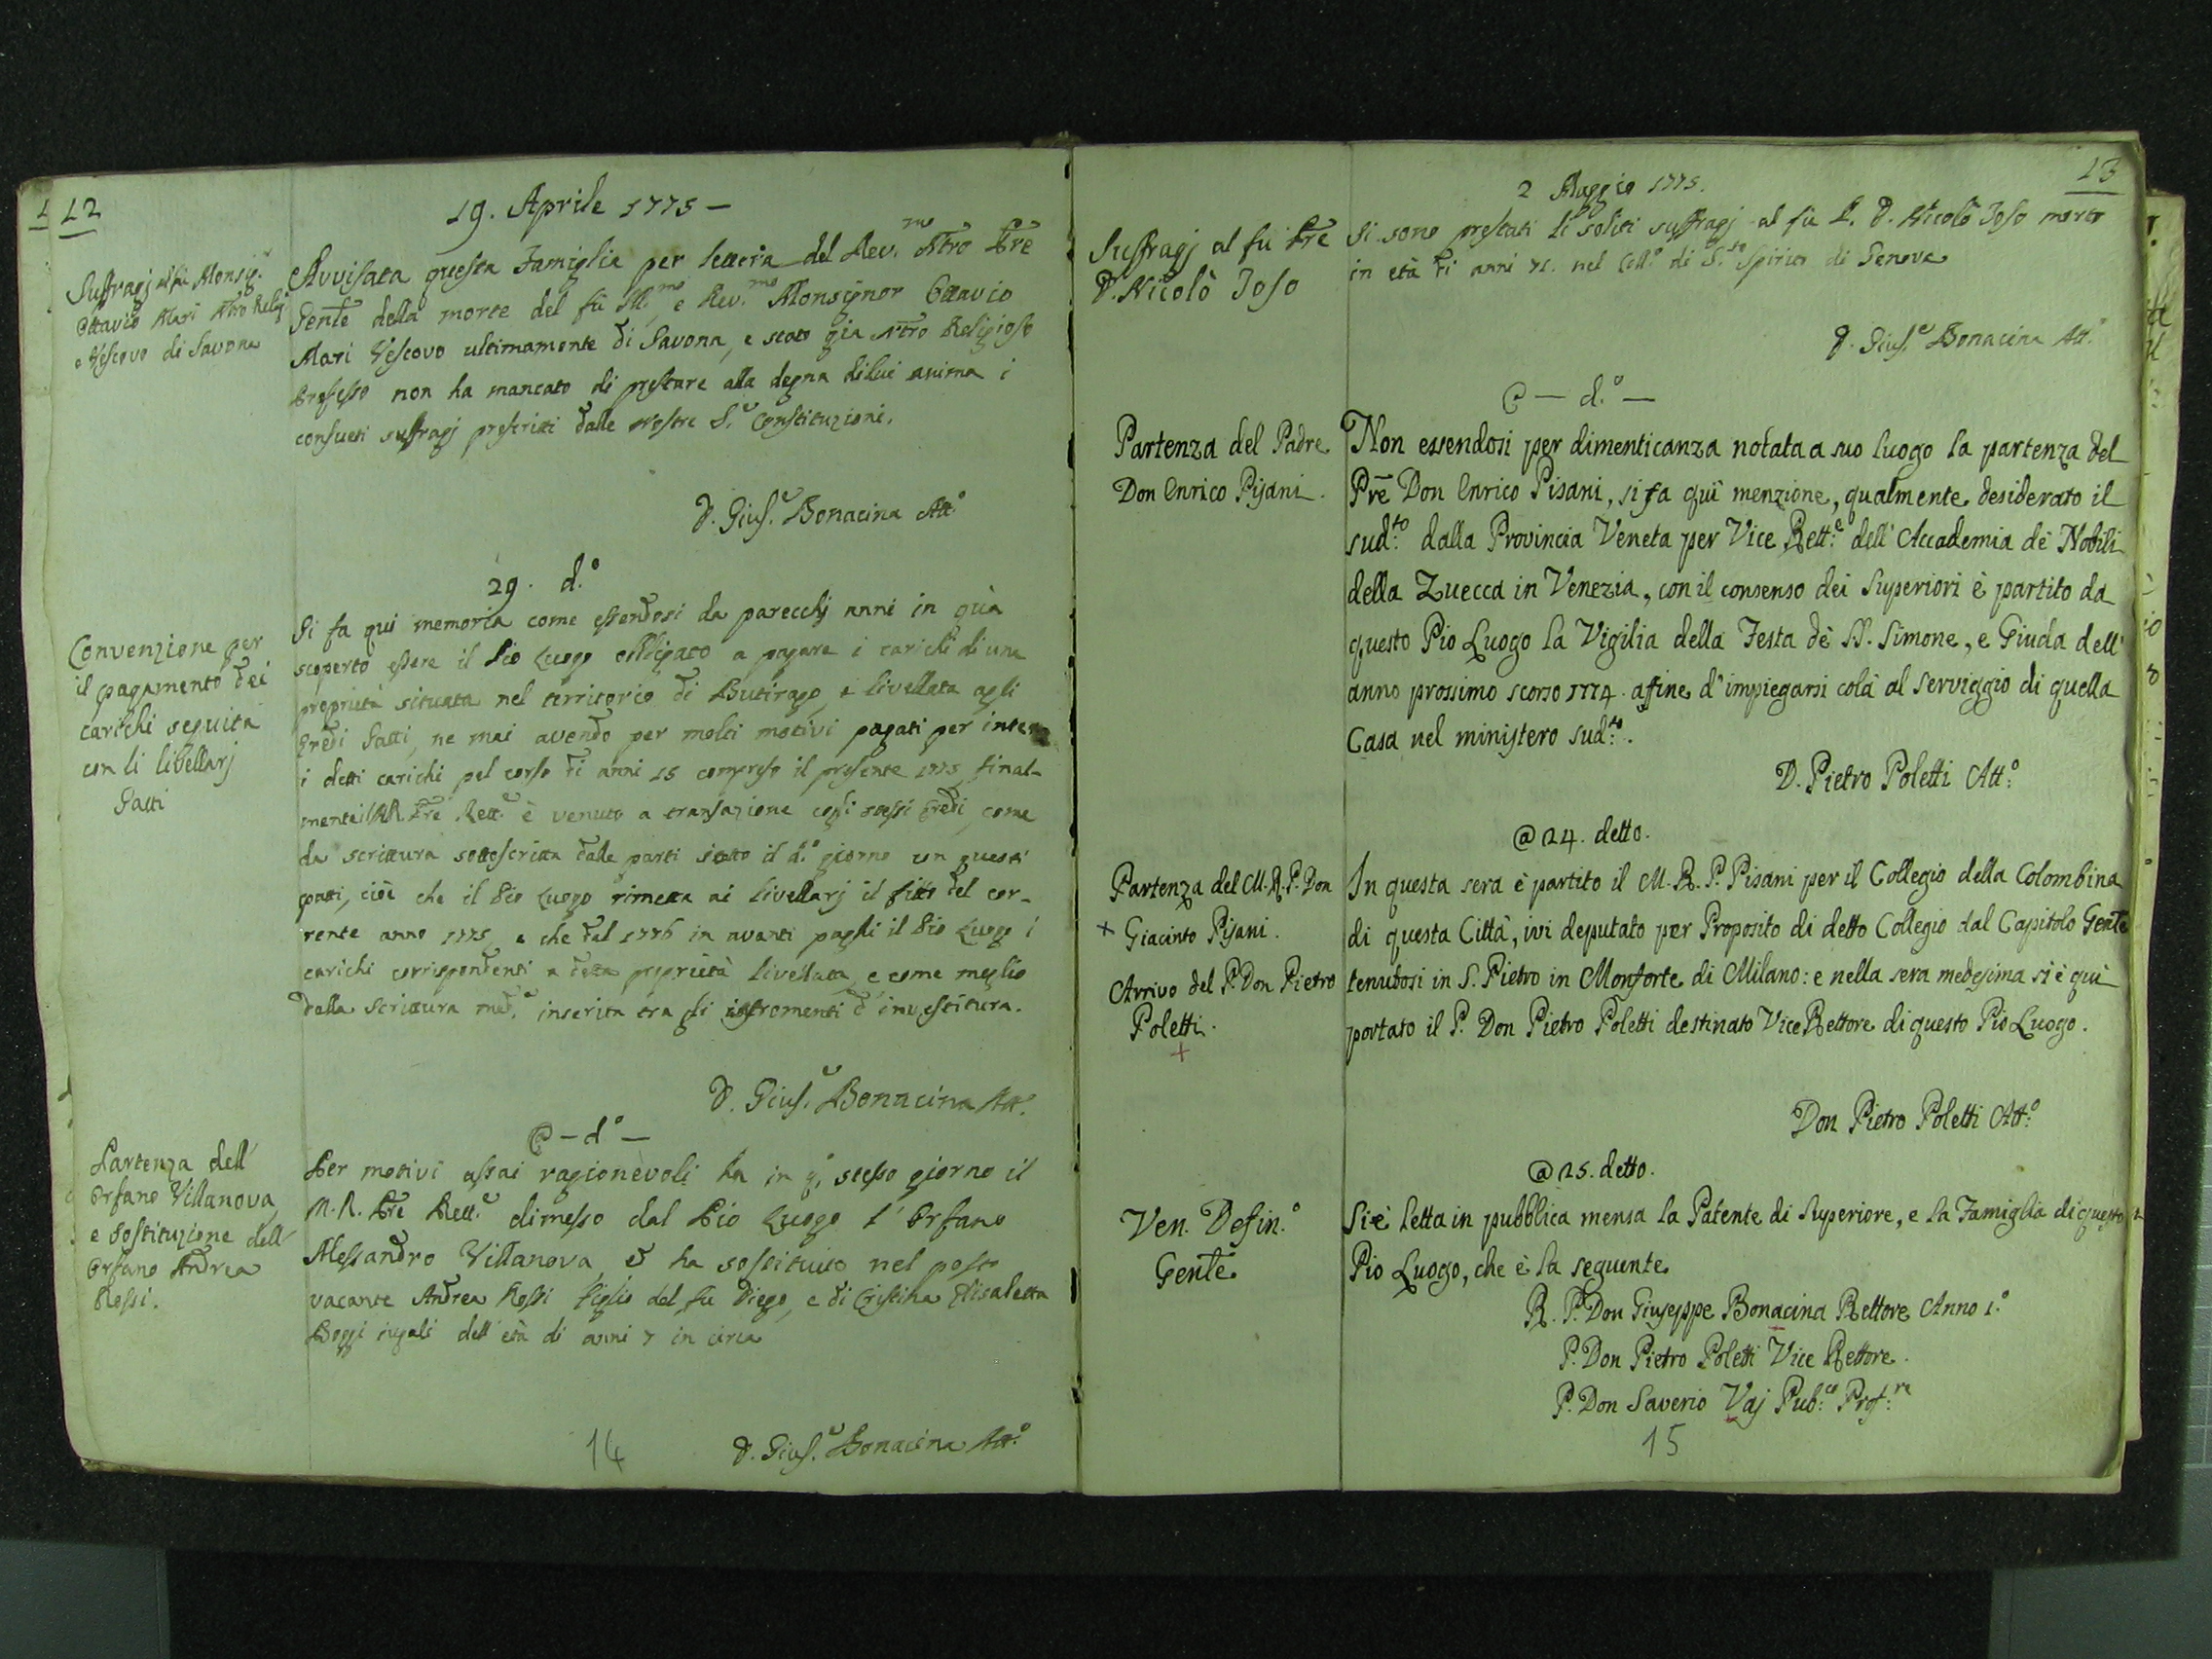 12
19. Aprile 1775 —
Suffragj al fù Monsig.r
Ottavio Mari Ñtro Relig.
e Vescovo di Savona
Avvisata questa Famiglia per lettera del Rev.mo Ñtro Pre
Genle della morte del fù Ill.mo e Rev.mo Monsignor Ottavio
Mari Vescovo ultimamente di Savona, e stato già Ñtro Religioso
Professo non ha mancato di prestare alla degna di lui anima i
consueti suffragj prescritti dalle Nostre S.e Constituzioni.
D. Gius.e Bonacina Att.o
29. d.o
Convenzione per
il pagamento dei
carichi seguita
con li libellarj
Gatti
Si fa qui memoria come essendosi da parecchj anni in quà
scoperto essere il Pio Luogo obbligato a pagare i carichi di una
proprietà situata nel territorio di Butirago, e livellata agli
Eredi Gatti, ne mai avendo per molti motivi pagati per intero
i detti carichi pel corso di anni 15 compreso il presente 1775 final-
mente il M.R. Pre Rett.e è venuto a transazione cogli stessi Eredi, come
da scrittura sottoscritta dalle parti sotto il d.o giorno con questi
patti, cioè che il Pio Luogo rimetta ai livellarj il fitto del cor-
rente anno 1775, e che dal 1776 in avanti paghi il Pio Luogo i
carichi corrispondenti a detta proprietà livellata, e come meglio
dalla Scrittura med.a inserita tra gli istromenti d'investitura.
D. Gius.e Bonacina Att.o
@ — d.o —
Partenza dell'
Orfano Villanova,
e Sostituzione dell'
Orfano Andrea
Rossi.
Per motivi assai ragionevoli ha in q.o stesso giorno il
M.R. Pre Rett.e dimesso dal Pio Luogo l'Orfano
Alessandro Villanova, ed ha sostituito nel posto
vacante Andrea Rossi figlio del fù Diego, e di Cristina Elisabetta
Boggi jugali dell'età di anni 7 in circa
D. Gius.e Bonacina Att.o
14
13
2 Maggio 1775.
Suffragj al fù Pre
D. Nicolò Joso
Si sono prestati li soliti suffragj al fù P. D. Nicolò Joso morto
in età di anni 71. nel Coll.o di S.to Spirito di Genova
D. Gius.e Bonacina Att.o
@ — d.o —
Partenza del Padre
Don Enrico Pisani.
Non essendosi per dimenticanza notata a suo luogo la partenza del
Pre Don Enrico Pisani, si fa quì menzione, qualmente desiderato il
sud:to dalla Provincia Veneta per Vice Rett:e dell'Accademia de' Nobili
della Zuecca in Venezia, con il consenso dei Superiori è partito da
questo Pio Luogo la Vigilia della Festa dè SS. Simone, e Giuda dell'
anno prossimo scorso 1774. affine d'impiegarsi colà al serviggio di quella
Casa nel ministero sud:to.
D. Pietro Poletti Att:o
@ 24. detto.
Partenza del M.R.P. Don
+ Giacinto Pisani.
Arrivo del P. Don Pietro
Poletti.
+
In questa sera è partito il M.R.P. Pisani per il Collegio della Colombina
di questa Città, ivi deputato per Proposito di detto Collegio dal Capitolo Genle
tenutosi in S. Pietro in Monforte di Milano: e nella sera medesima si è quì
portato il P. Don Pietro Poletti destinato Vice Rettore di questo Pio Luogo.
Don Pietro Poletti Att:o
@ 25. detto.
Ven. Defin.o
Genle
Si è letta in pubblica mensa la Patente di Superiore, e la Famiglia di questo
Pio Luogo, che è la seguente
R. P. Don Giuseppe Bonacina Rettore Anno 1.o
P. Don Pietro Poletti Vice Rettore.
P. Don Saverio Vaj Pub:co Prof:re
15